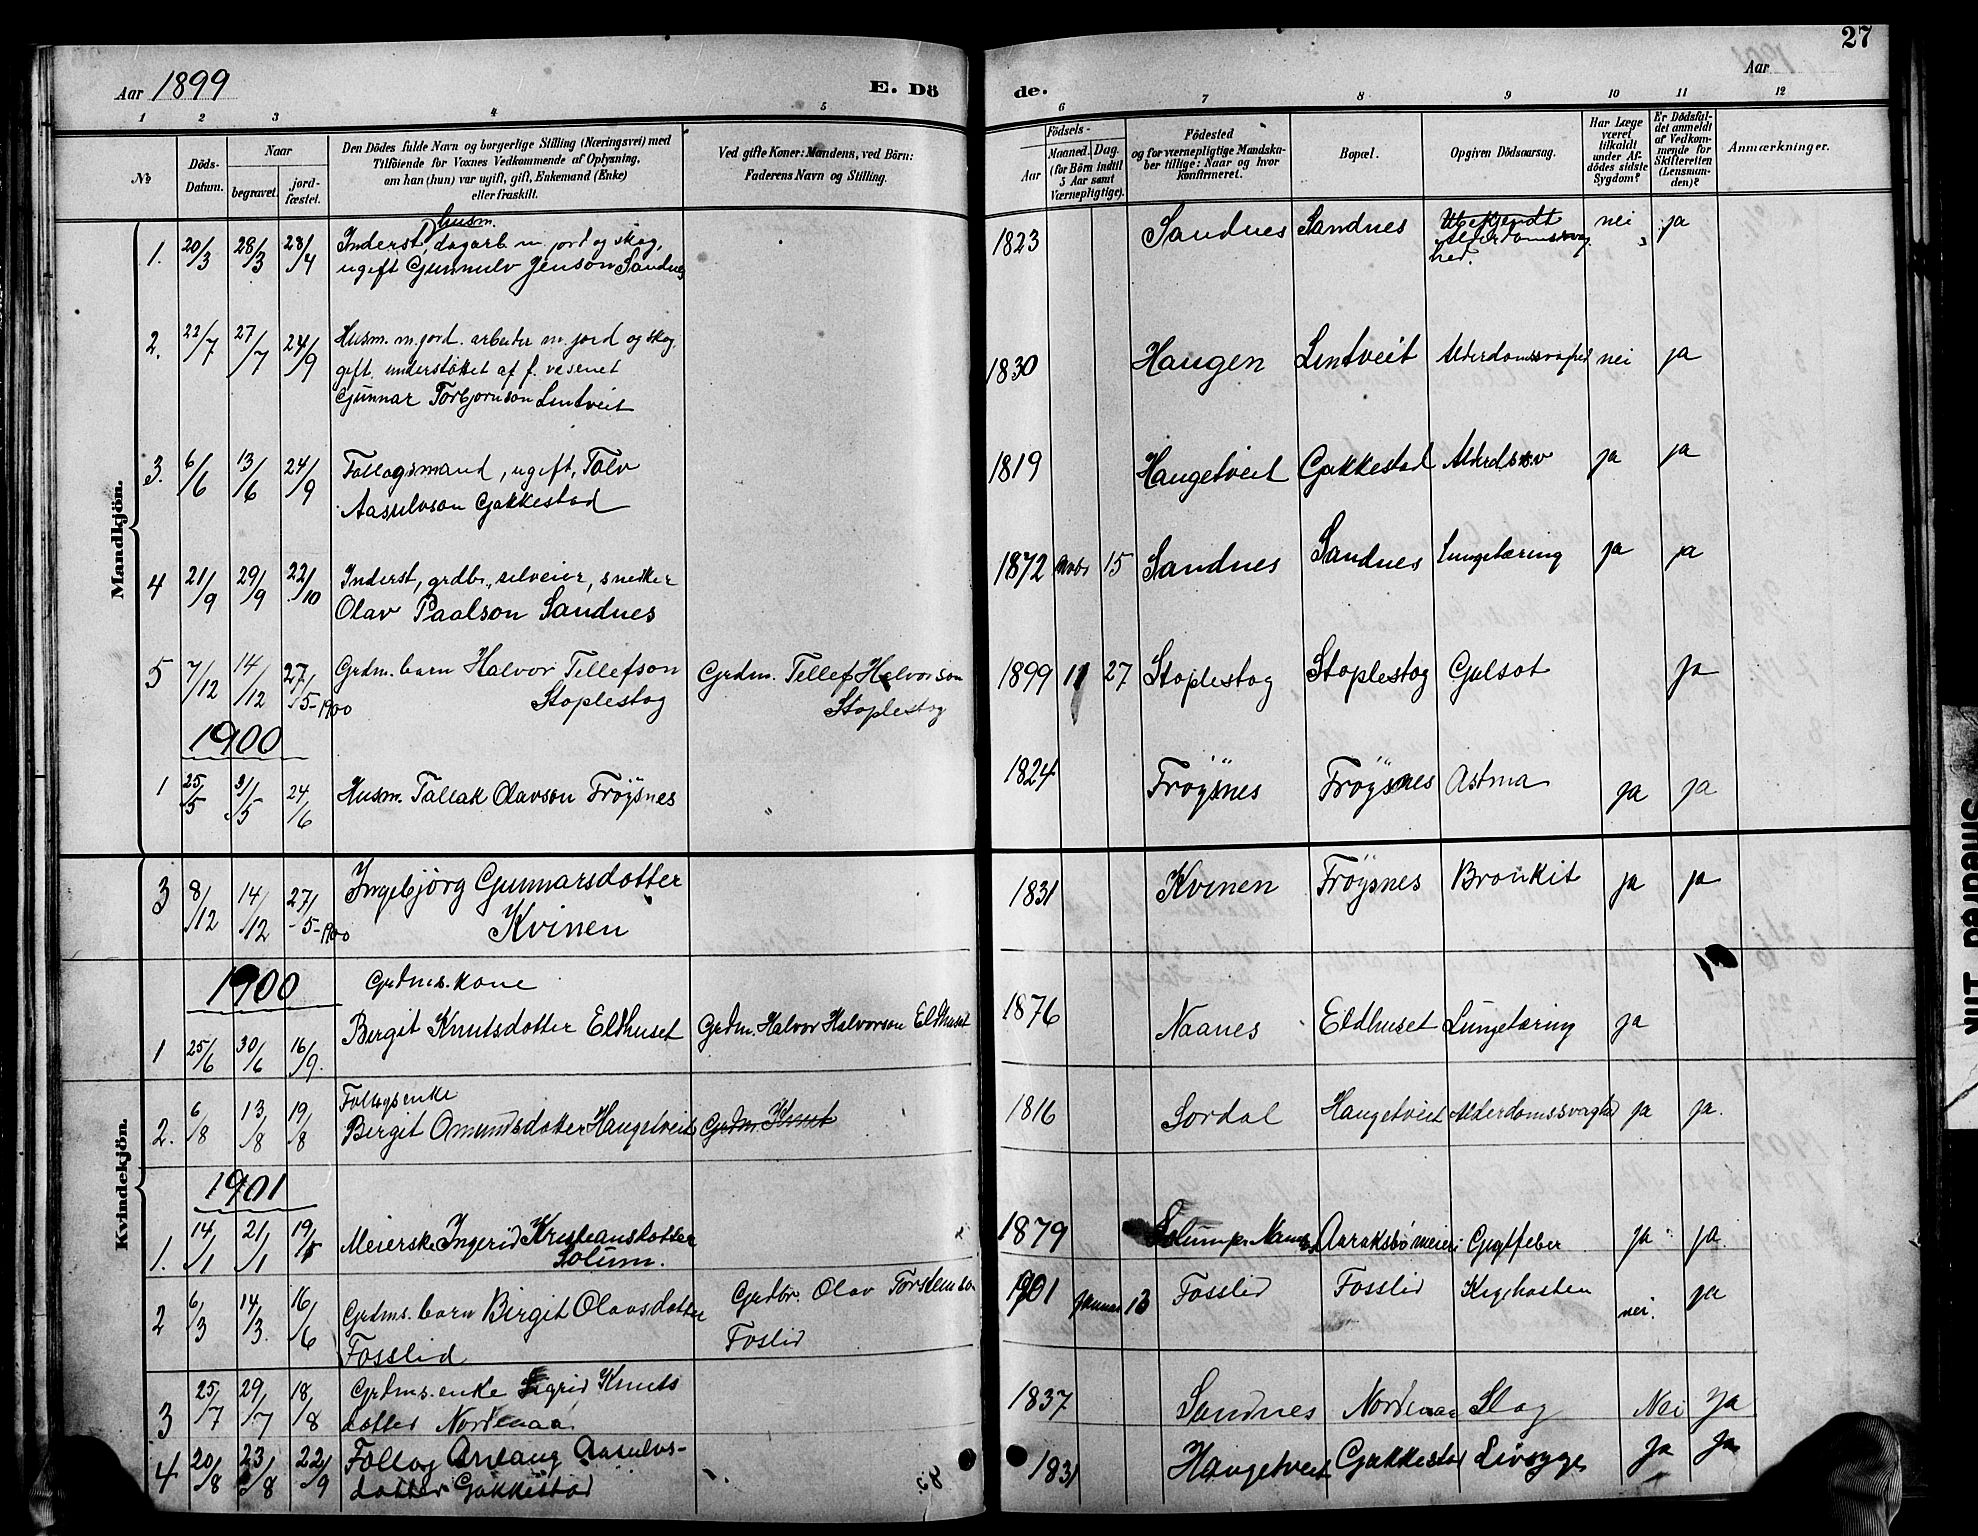 27
Aar 1899
E. Dö
de.
Aar
1 2 3 4 5 6 7 8 9 10 11 12
No
Döds-
Datum.
Naar
begravet.
jord-
fæstet.
Den Dödes fulde Navn og borgerlige Stilling (Næringsvei) med
Tilföiende for Voxnes Vedkommende af Oplysning,
om han (hun) var ugift, gift, Enkemand (Enke)
eller fraskilt.
Ved gifte Koner: Mandens, ved Börn:
Faderens Navn og Stilling.
Födsels-
Aar
Maaned. Dag.
(for Börn indtil
5 Aar samt
Værnepligtige).
Födested
og for værnepligtige Mandska-
ber tillige: Naar og hvor
konfirmeret.
Bopæl.
Opgiven Dödsaarsag.
Har Læge
været
tilkaldt
under Af-
dödes sidste
Sygdom?
Er Dödsfal-
det anmeldt
af Vedkom-
mende for
Skifteretten
(Lensman-
den)?
Anmærkninger.
Mandkjön.
husm.
1. 20/3 28/3 23/4 Inderst, dagarb m jord og skog, 1823 Sandnes Sandnes Ubekjendt nei ja
ugift Gunnulv Jenson Sandnes Alderdomssvag
hed.
2. 22/7 27/7 24/9 Husm. m. jord. arbeider m. jord og skog, 1830 Haugen Lintveit Alderdomssvaghed nei ja
gift. understöttet af f. væsenet
Gunnar Torbjornson Lintveit
3. 6/6 13/6 24/9 Follogsmand, ugift, Tolv 1819 Haugetveit Gakkestad Alderdssv ja ja
Aasulvson Gakkestad
4 21/9 29/9 22/10 Inderst, grdbr., selveier, snedker 1872 15 Sandnes Sandnes Lungetæring ja ja
Olav Paalson Sandnes
5 7/12 14/12 27/5-1900 Grdm. barn Halvor Tellefson Grdm. Tellef Halvorson 1899 11 27 Stoplestog Stoplestog Gulsot ja
Stoplestog Stoplestog
1900
1 25/5 31/5 24/6 Husm. Tallak Olavson Fröysnes 1824 Fröysnes Fröysnes Astma ja ja
Kvindekjön.
3 8/12 14/12 27/5-1900 Ingebjörg Gunnarsdotter 1831 Kvinen Fröysnes Bronkit ja ja
Kvinen
1900
Grdms. kone
1 25/6 30/6 16/9. Bergit Knutsdotter Eldhuset Grdm. Halvor Halvorson Eldhuset 1876 Naanes Eldhuset Lungetæring ja
Follogsenke
2. 6/8 13/8 19/8 Birgit Omundsdotter Haugetveit Grdm. Knut 1816 Sordal Haugetveit Alderdomssvaghed ja ja.
1901
1. 14/1 21/1 19/5 Meierske Ingerid Kristiansdotter 1879 Aaraksbö meieri Gigtfeber ja ja.
Solum.
2 6/3 14/3. 16/6 Grdms. barn Birgit Olavsdotter Grdbr. Olav Torsteinson 1901 januar 13 Fosslid Fosslid Kighosten nei. ja
Fosslid Foslid
3 25/7 29/7 18/8 Grdms. enke Sigrid Knuts 1837 Sandnes Nordenaa Slag Nei ja
dotter Nordenaa
4 20/8 23/8 22/9 Follog Aasulvs- 1831 Haugetveit Gakkestad Livsyge ja ja
dotter Gakkestad